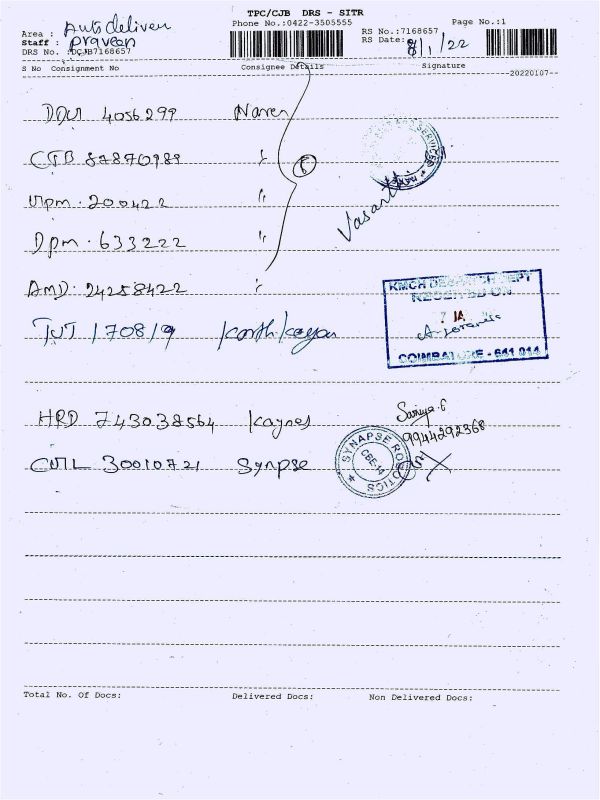 TPC/CJB DRS - SITR
Phone No.:0422-3505555 Page No.:1
Area : Auto deliven
Staff : Praveen
DRS No. :DCJB7168657
RS No.:7168657
RS Date: 8/1/22
S No Consignment No Consignee Details Signature
--20220107--
4056299 Naren
CTB 87870989 "
200422 "
Dpm. 633222 "
AMD. 24258422 "
6
Vasanth
KMCH DESPATCH DEPT
RECEIVED ON
7 JA
COIMBATORE - 641 014
TUT 170819
HRD 743038564 Kaynes
Saniya.F
9944292368
CUTL 30010721 Synpse
SYNAPSE ROBOTICS
CBE-14
Total No. Of Docs: Delivered Docs: Non Delivered Docs: